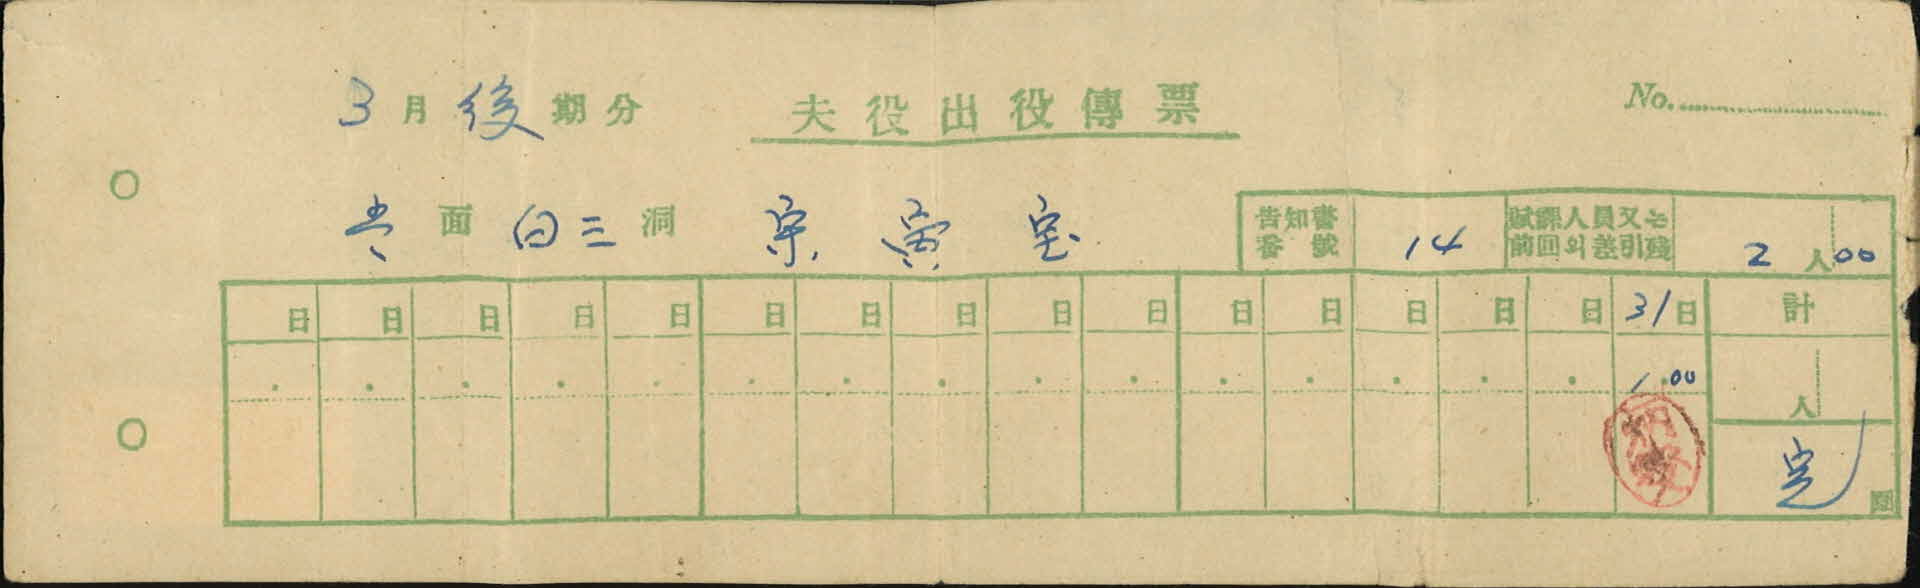 3月後期分 夫役出役傳票 No.
面 白三洞 宋寅
告知書番號 14 賦課人員又는前回의差引殘 2人00
日 日 日 日 日 日 日 日 日 日 日 日 日 日 日 31日 計
1.00 人
完